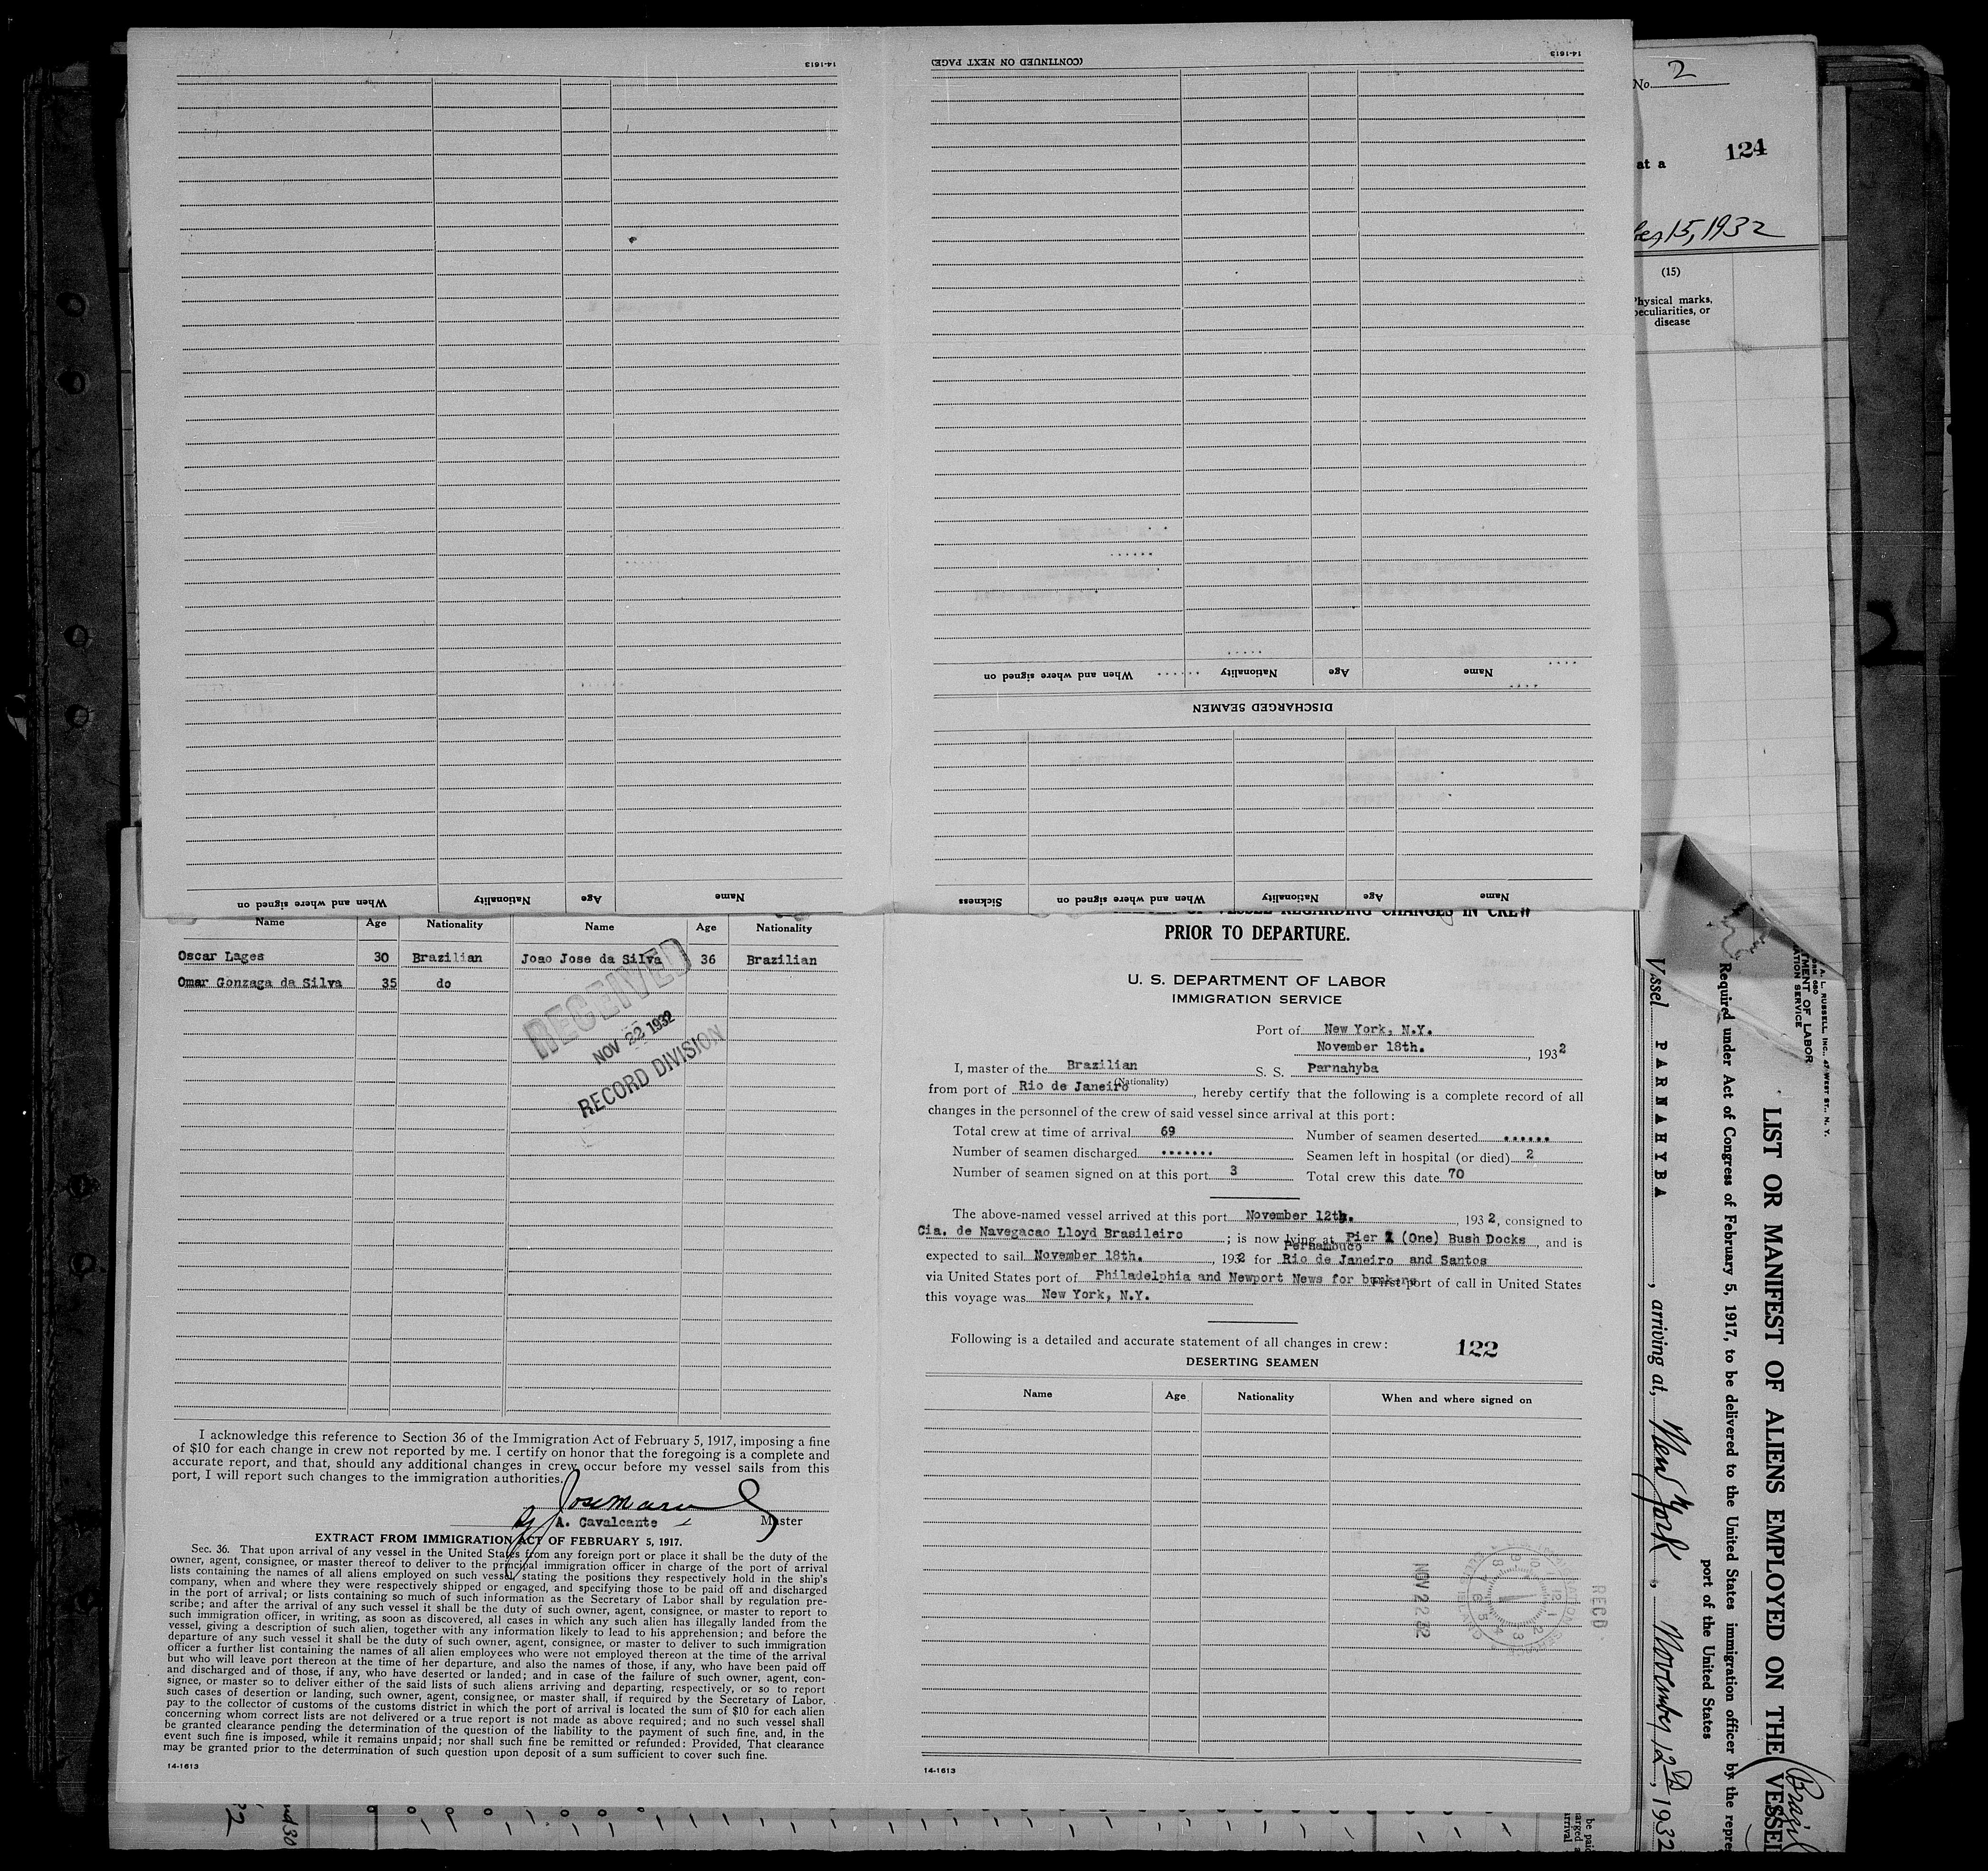 14-1613
14-1613
(CONTINUED ON NEXT PAGE)
When and where signed on Nationality Age Name
DISCHARGED SEAMEN
Sickness When and where signed on Nationality Age Name
When and where signed on Nationality Age Name
No. 2
at a 124
15, 1932
(15)
Physical marks,
peculiarities, or
disease
2
Name Age Nationality Name Age Nationality
Oscar Lages 30 Brazilian Joao Jose da Silva 36 Brazilian
Omar Gonzaga da Silva 35 do
RECEIVED
NOV 22 1932
RECORD DIVISION
I acknowledge this reference to Section 36 of the Immigration Act of February 5, 1917, imposing a fine
of $10 for each change in crew not reported by me. I certify on honor that the foregoing is a complete and
accurate report, and that, should any additional changes in crew occur before my vessel sails from this
port, I will report such changes to the immigration authorities.
A. Cavalcante Master
EXTRACT FROM IMMIGRATION ACT OF FEBRUARY 5, 1917.
Sec. 36. That upon arrival of any vessel in the United States from any foreign port or place it shall be the duty of the
owner, agent, consignee, or master thereof to deliver to the principal immigration officer in charge of the port of arrival
lists containing the names of all aliens employed on such vessel, stating the positions they respectively hold in the ship's
company, when and where they were respectively shipped or engaged, and specifying those to be paid off and discharged
in the port of arrival; or lists containing so much of such information as the Secretary of Labor shall by regulation pre-
scribe; and after the arrival of any such vessel it shall be the duty of such owner, agent, consignee, or master to report to
such immigration officer, in writing, as soon as discovered, all cases in which any such alien has illegally landed from the
vessel, giving a description of such alien, together with any information likely to lead to his apprehension; and before the
departure of any such vessel it shall be the duty of such owner, agent, consignee, or master to deliver to such immigration
officer a further list containing the names of all alien employees who were not employed thereon at the time of the arrival
but who will leave port thereon at the time of her departure, and also the names of those, if any, who have been paid off
and discharged and of those, if any, who have deserted or landed; and in case of the failure of such owner, agent, con-
signee, or master so to deliver either of the said lists of such aliens arriving and departing, respectively, or so to report
such cases of desertion or landing, such owner, agent, consignee, or master shall, if required by the Secretary of Labor,
pay to the collector of customs of the customs district in which the port of arrival is located the sum of $10 for each alien
concerning whom correct lists are not delivered or a true report is not made as above required; and no such vessel shall
be granted clearance pending the determination of the question of the liability to the payment of such fine, and, in the
event such fine is imposed, while it remains unpaid; nor shall such fine be remitted or refunded: Provided, That clearance
may be granted prior to the determination of such question upon deposit of a sum sufficient to cover such fine.
14-1613
OF VESSEL REGARDING CHANGES IN CREW
PRIOR TO DEPARTURE.
U. S. DEPARTMENT OF LABOR
IMMIGRATION SERVICE
Port of New York, N.Y.
November 18th. , 1932
I, master of the Brazilian S. S. Parnahyba
(Nationality)
from port of Rio de Janeiro, hereby certify that the following is a complete record of all
changes in the personnel of the crew of said vessel since arrival at this port:
Total crew at time of arrival 69 Number of seamen deserted ......
Number of seamen discharged ....... Seamen left in hospital (or died) 2
Number of seamen signed on at this port 3 Total crew this date 70
The above-named vessel arrived at this port November 12th. , 1932, consigned to
Cia. de Navegacao Lloyd Brasileiro ; is now lying at Pier 1 (One) Bush Docks, and is
Pernambuco
expected to sail November 18th. , 1932 for Rio de Janeiro and Santos
via United States port of Philadelphia and Newport News for bunkers First port of call in United States
this voyage was New York, N.Y.
Following is a detailed and accurate statement of all changes in crew: 122
DESERTING SEAMEN
Name Age Nationality When and where signed on
RECD
14-1613
A. L. RUSSELL, INC., 47 WEST ST., N. Y.
TMENT OF LABOR
ATION SERVICE
LIST OR MANIFEST OF ALIENS EMPLOYED ON THE VESSEL
(Brazil
Required under Act of Congress of February 5, 1917, to be delivered to the United States immigration officer by the repre
port of the United States
Vessel PARNAHYBA, arriving at, New York, November 12th, 1932
be paid
arged
arrival